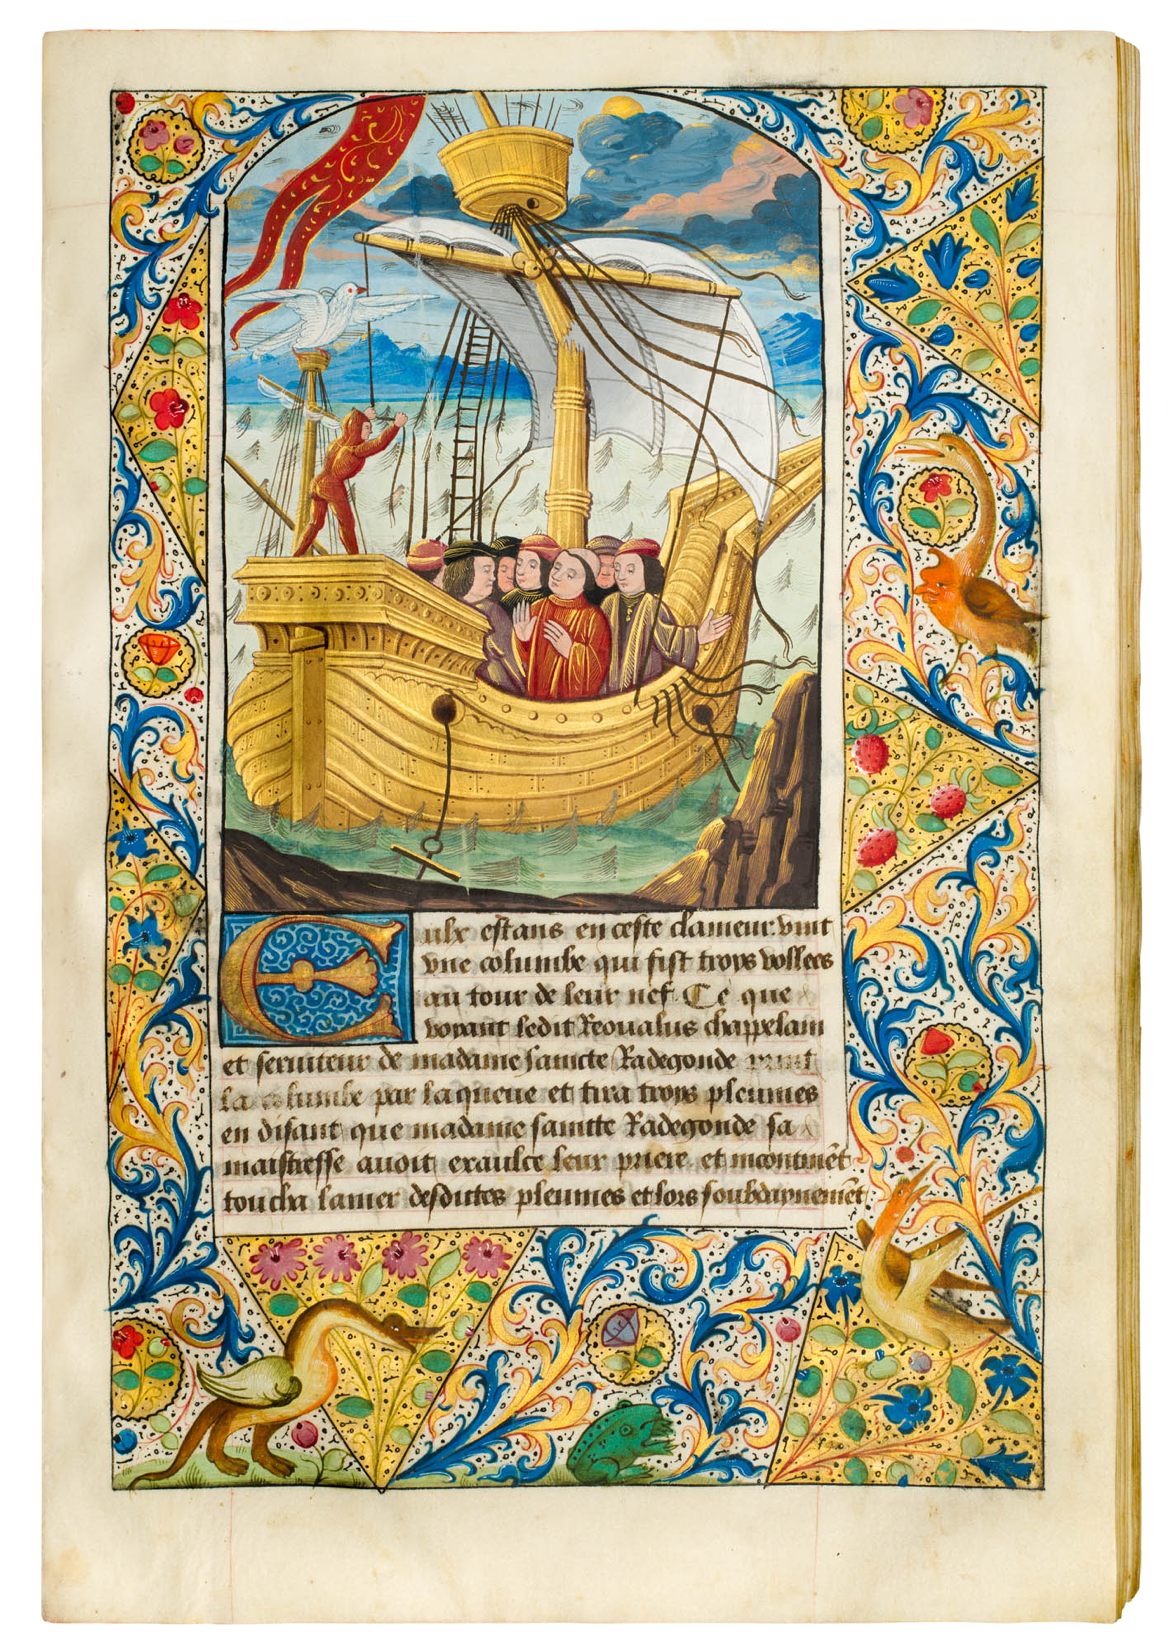 Eulx estans en ceste clameur. vint
vne columbe qui fist troys vollees
au tour de leur nef. Ce que
voyant ledit Reoualus chappelain
et seruiteur de madame saincte Radegonde print
la columbe par la queue et tira troys pleumes
en disant que madame saincte Radegonde sa
maistresse auoit exaulce leur priere. et incontinēt
toucha lamer desdictes pleumes et lors soubdaynemēt